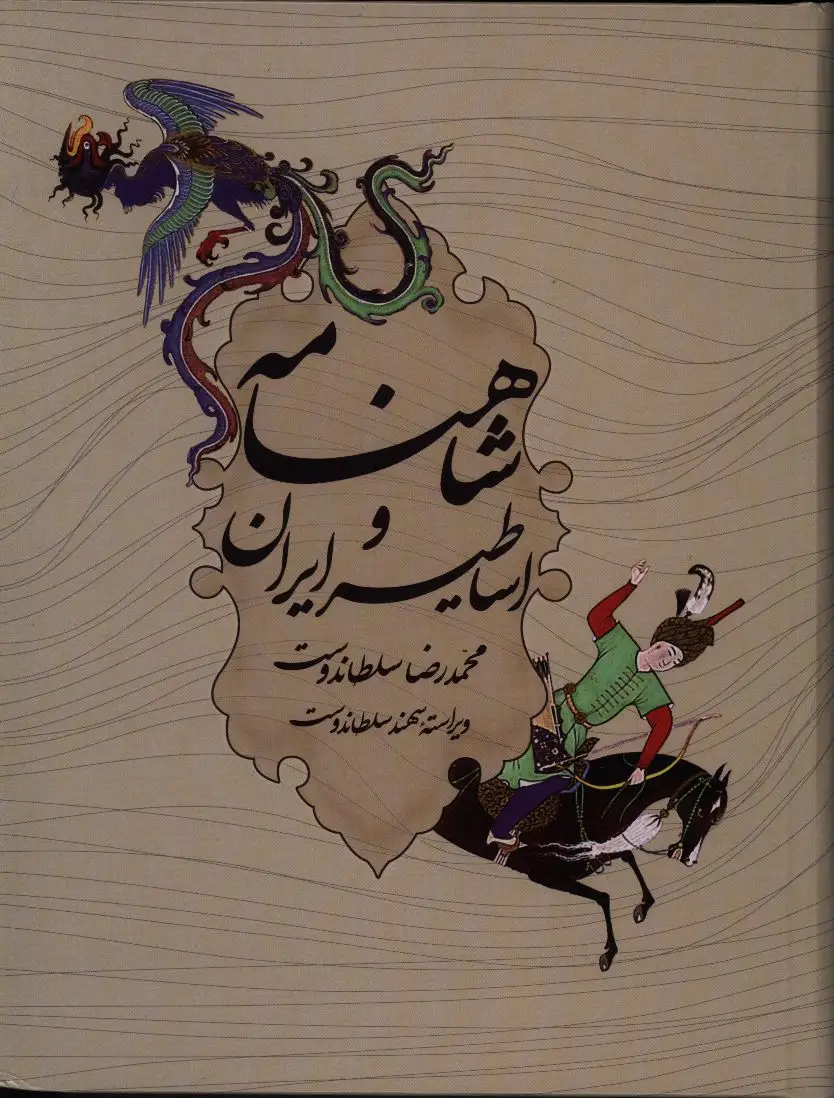 شاهنامه
و
اساطیر ایران
محمّدرضا سلطاندوست
ویراستهٔ سهند سلطاندوست